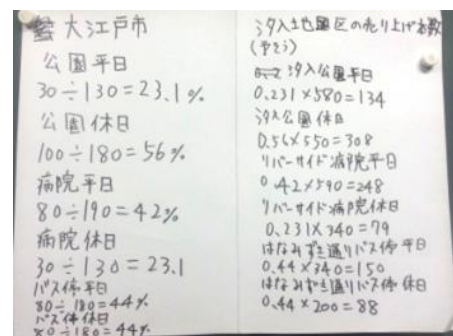 大江戸市
公園平日
30÷130=23.1%
公園休日
100÷180=56%
病院平日
80÷190=42%
病院休日
30÷130=23.1
バス停平日
80÷180=44%
バス停休日
80÷180=44%
汐入地区の売り上げ本数
(予そう)
汐入公園平日
0.231×580=134
汐入公園休日
0.56×550=308
リバーサイド病院平日
0.42×590=248
リバーサイド病院休日
0.231×340=79
はなみずき通りバス停平日
0.44×340=150
はなみずき通りバス停休日
0.44×200=88